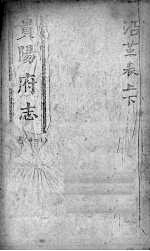 沿革表上下
貴陽府志